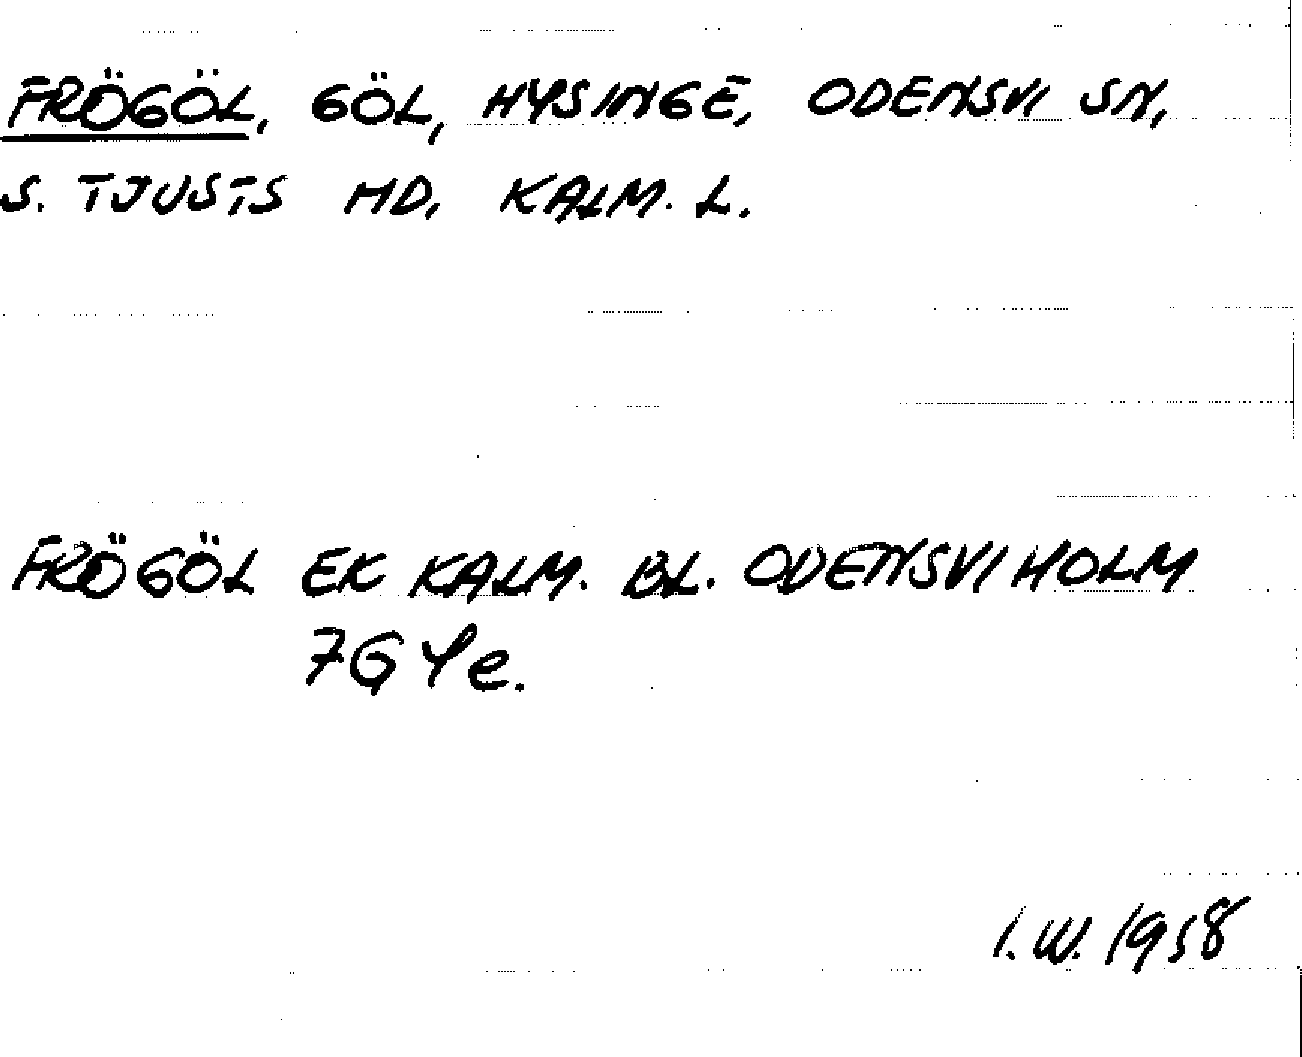 FRÖGÖL, GÖL, HYSINGE, ODENSVI SN,
S. TJUSTS HD, KALM. L.
FRÖGÖL EK KALM. BL. ODENSVIHOLM
7G 4e.
I.W. 1958